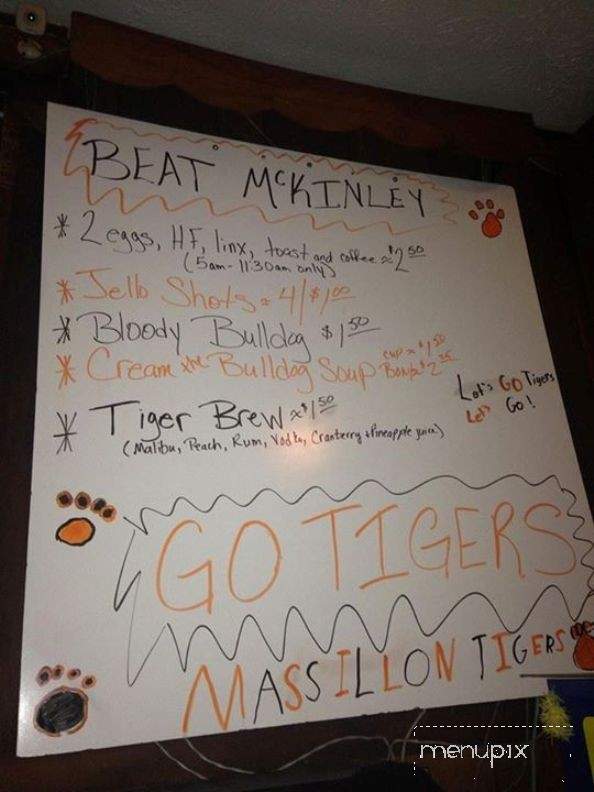 BEAT McKINLEY
* 2 eggs, HF, linx, toast and coffee ≈ $2 50
(5am - 11:30am only)
* Jello Shots ≈ 4/$1 00
* Bloody Bulldog $1 50
* Cream the Bulldog Soup cup ≈ $1 50
Bowl ≈ $2 25
* Tiger Brew ≈ $1 50
(Malibu, Peach, Rum, Vodka, Cranberry + Pineapple juice)
Let's GO Tigers
Let's Go!
GO TIGERS
MASSILLON TIGERS
menupix